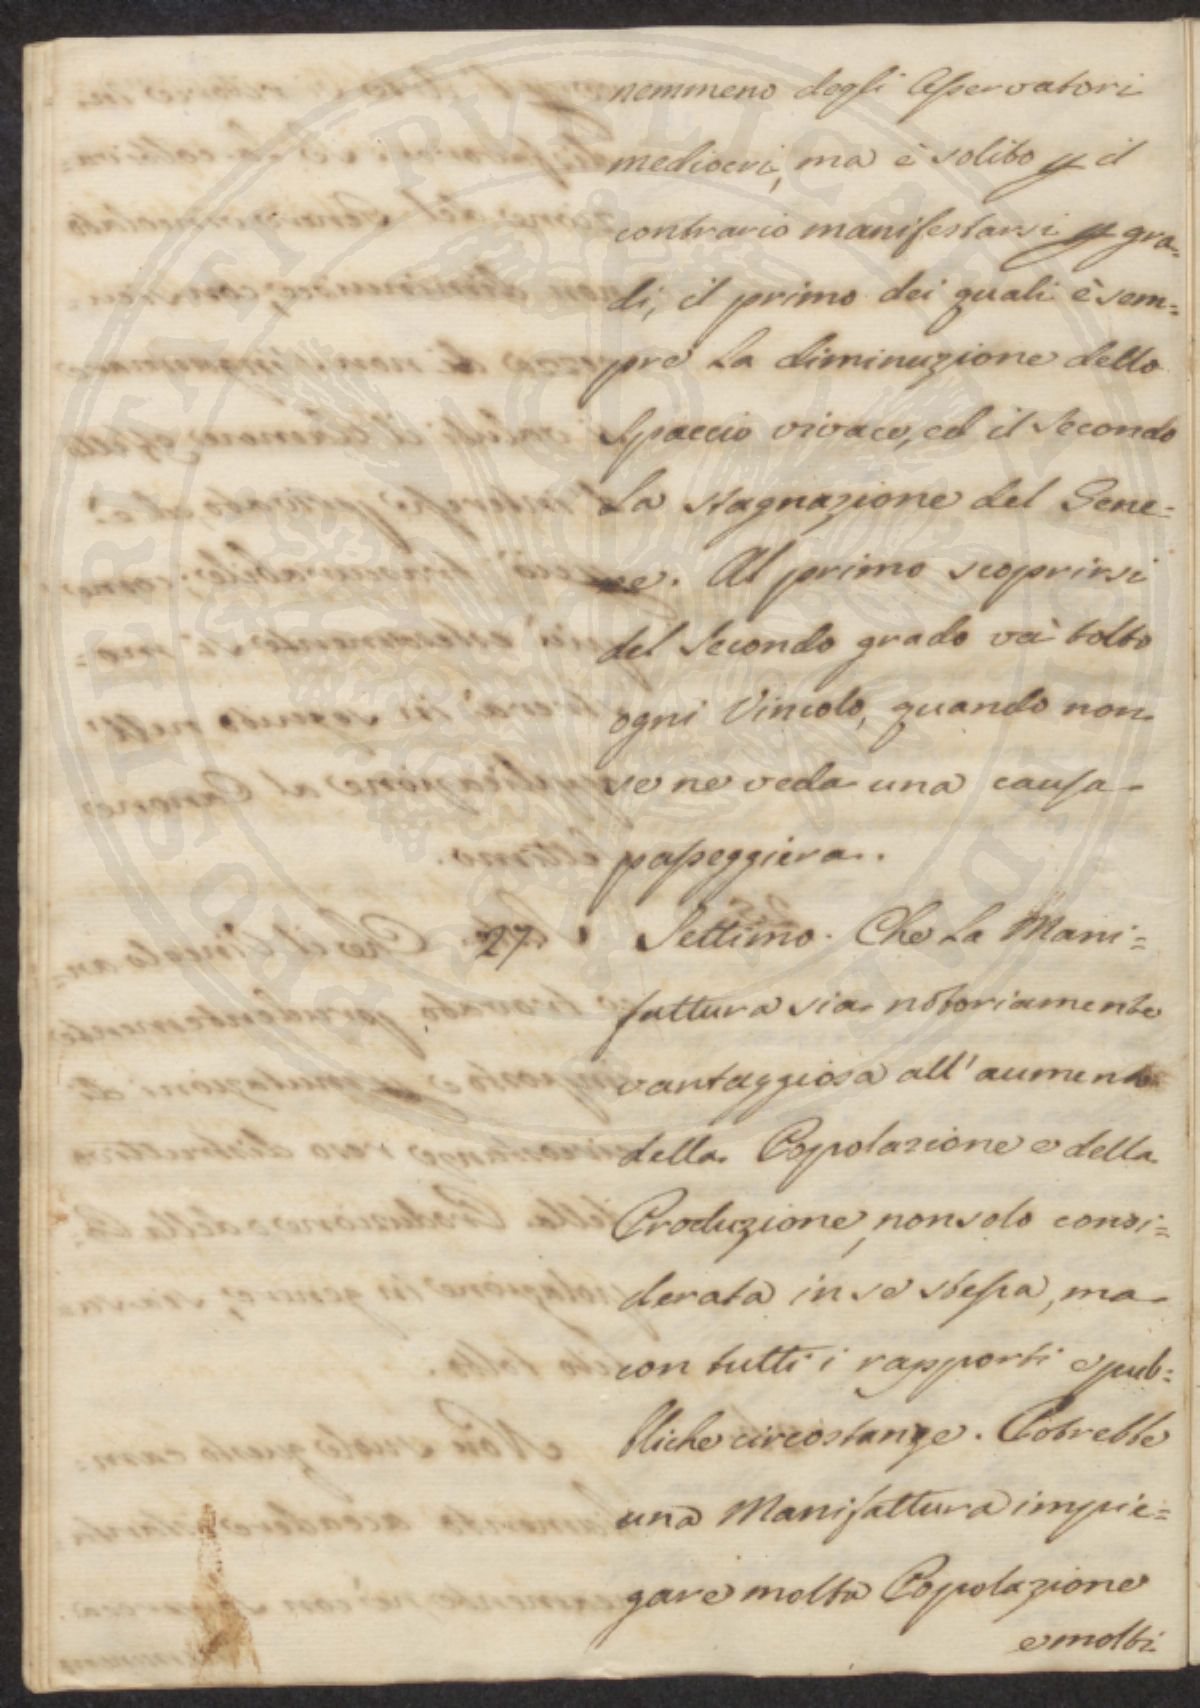 nemmeno degli Osservatori
mediocri, ma è solito p il
contrario manifestarsi p gra=
di, il primo dei quali è sem=
pre La diminuzione dello
Spaccio vivace, ed il Secondo
La stagnazione del Gene=
re. Al primo scoprirsi
del Secondo grado và tolto
ogni Vincolo, quando non
se ne veda una causa
passeggiera.
27. Settimo. Che La Mani=
fattura sia notoriamente
vantaggiosa all' aumento
della Popolazione e della
Produzione, non solo consi=
derata in se stessa, ma
con tutti i rapporti e pub=
bliche circostanze. Potrebbe
una Manifattura impie=
gare molta Popolazione
e molti